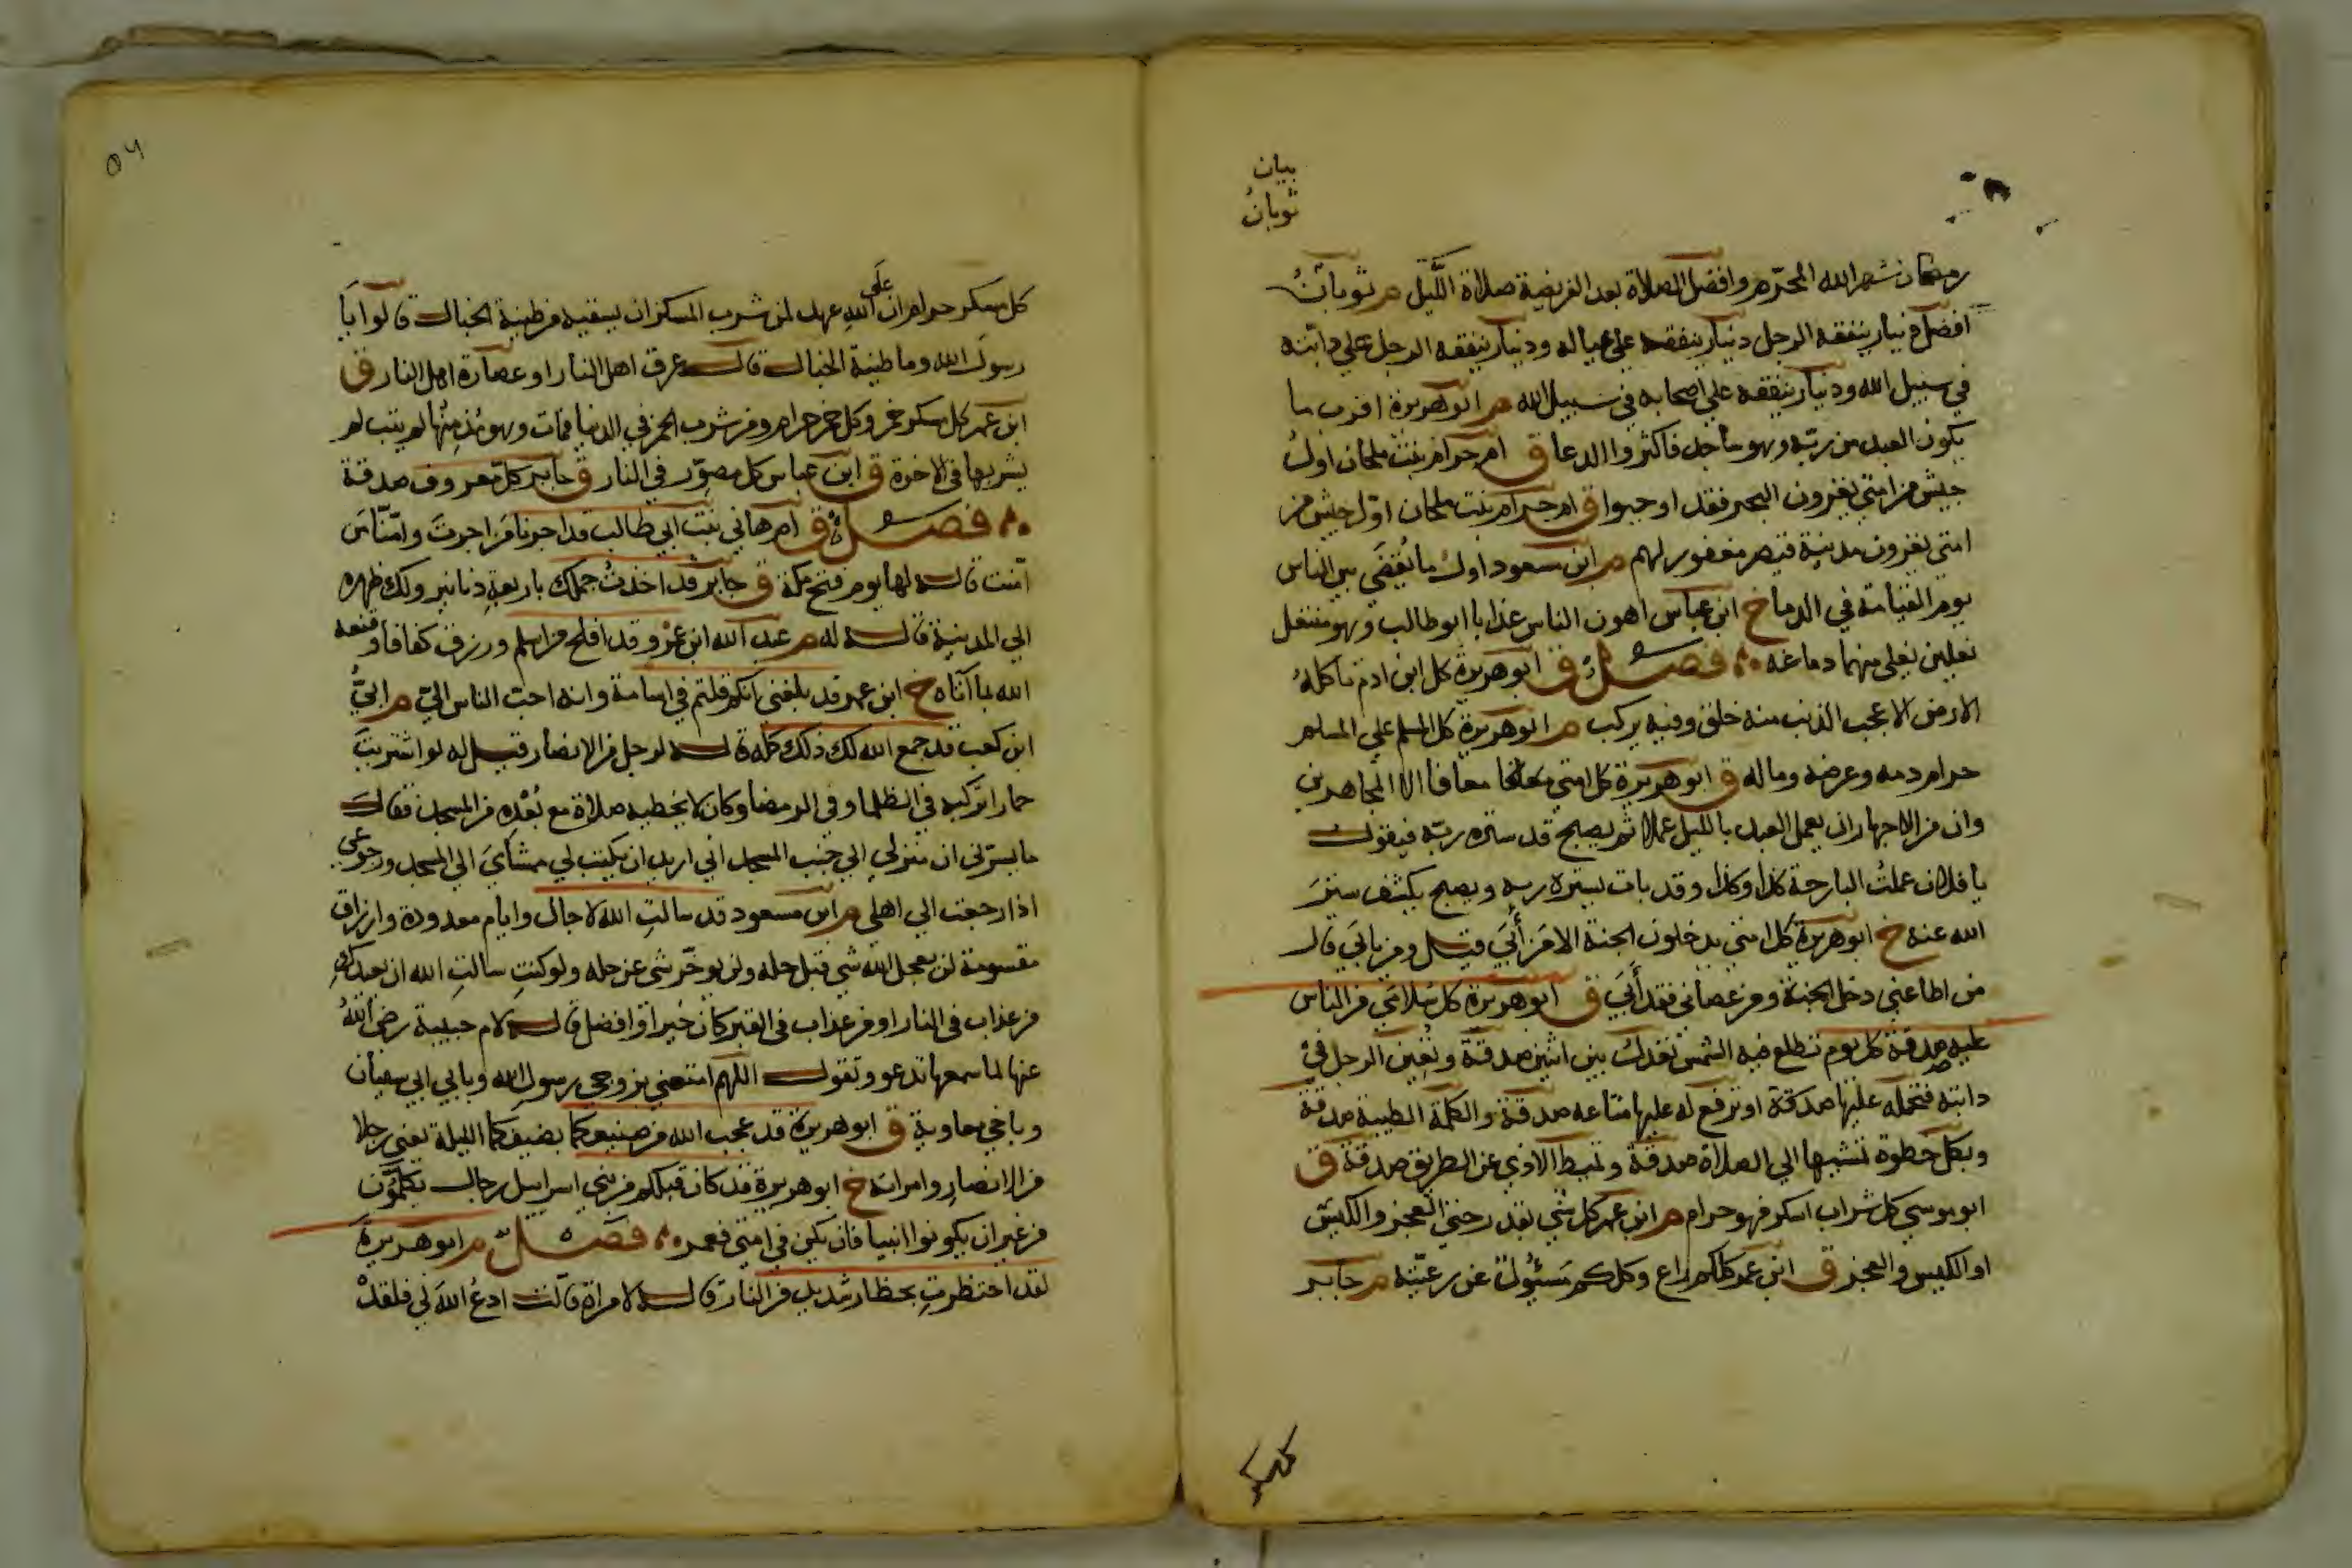 بيان
ثوبانُ
رمضان شهر الله المحرّم وافضل الصلاة بعد الفريضة صلاة اللَّيل م ثوبانُ
افضل دينار ينفقه الرجل دينار ينفقه على عياله ودينار ينفقه الرجل علي دابته
في سبيل الله ودينار ينفقه علي اصحابه في سبيل الله م ابو هريرة اقرب ما
يكون العبد من ربّه وهو ساجد فاكثروا الدعا ق ام حرام بنت ملحان اول
جيش من امتي يغزون البحر فقد اوجبوا ق ام حرام بنت ملحان اوّل جيش من
امتي يغزون مدينة قيصر مغفور لهم م ابن سعود اول ما يُقضَي بين الناس
يوم القيامة في الدما خ ابن عباس اهون الناس عذابا ابو طالب وهو منتعل
نعلين يغلي منهما دماغه فصل ق ابو هريرة كل ابن ادم تاكله
الارض الا عجب الذنب منه خلق وفيه يركب م ابو هريرة كل المسلم علي المسلم
حرام دمه وعرضه وماله ق ابو هريرة كل امتي معافا الا المجاهرين
وان من الاجهار ان يعمل العبد بالليل عملا ثم يصبح قد ستره ربّه فيقول
يا فلان عملتُ البارحة كذا وكذا وقد بات يستره ربه ويصبح يكشف ستر
الله عنه خ ابو هريرة كل امتي يدخلون الجنة الا من أَبَي قيل ومن يابَي قال
من اطاعني دخل الجنة ومن عصاني فقد أَبَي ق ابو هريرة كل سُلامَي من الناس
عليه صدقة كل يوم تطلع فيه الشمس تعدل بين اثنين صدقة وتُعِين الرجل في
دابته فتحمله عليها صدقة او ترفع له عليها متاعه صدقة والكلمة الطيبة صدقة
وبكل خطوة تمشيها الي الصلاة صدقة وتميط الاذي عن الطريق صدقة ق
ابو موسي كل شراب اسكر فهو حرام م ابن عمر كل شي بقدر حتي العجز والكيس
او الكيس والعجز ق ابن عمر كلكم راع وكلكم مَسئُولٌ عن رعيّته م جابر
كل مسكر
٥٦
كل مسكر حرام ان علَي الله عهدا لمن شرب المسكر ان يسقيه من طينة الخبال قالوا يا
رسولَ الله وما طينة الخبال قال عرق اهل النار او عصارة اهل النار ق
ابن عمر كل مسكر خمر وكل خمر حرام ومن شرب الخمر في الدنيا فمات وهو يُدْمِنُها لم يتب لم
يشربها في الاخرة ق ابن عباس كل مصوّر في النار ق جابر كلّ معروف صدقة
فصل ق ام هاني بنت ابي طالب قد اجرنا مَن اجرتِ وامّنّا مَن
امّنت قاله لها يوم فتح مكة ق جابر قد اخذتُ جملك باربعةِ دنانير ولك ظهره
الي المدينة قاله له م عبد الله ابن عمرو قد افلح من اسلم ورزق كفافا وقنعه
الله بما آتاه خ ابن عمر قد بلغني انكم قلتم في اسامة وانه احب الناس اليّ م ابيُّ
ابن كعب قد جمع الله لك ذلك كلّه قاله لرجل من الانصار قيل له لو اشتريتَ
حمارا تركبه في الظلما وفي الرمضا وكان لا يخطيه صلاة مع بُعْدِه من المسجد فقال
ما يسرّني ان منزلي الي جنب المسجد اني اريد ان يكتب لي ممشايَ الي المسجد ورجوعي
اذا رجعت الي اهلي م ابن مسعود قد سالتِ الله لاجال وايام معدودة وارزاق
مقسومة لن يعجل الله شي قبل حله ولن يوخّر شي عن حله ولو كنتِ سالتِ الله ان يعيذكِ
من عذاب في النار او من عذاب في القبر كان خيرا او افضل قاله لام حبيبة رضي اللهُ
عنها لما سمعها تدعو وتقول اللهم امتعني بزوجي رسول الله وبابي ابي سفيان
وباخي معاوية ق ابو هريرة قد عجب الله من صنيعكما بضيفكما الليلة يعني رجلا
من الانصار وامراته خ ابو هريرة قد كان قبلكم من بني اسراييل رجال يُكَلَّمُون
من غير ان يكونوا انبيا فان يكن في امتي فعمر فصل م ابو هريرة
لقد احتظرتِ بحظار شديد من النار قاله لامراة قالت ادعُ اللهَ لي فلقد